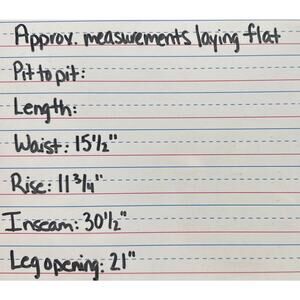 Approx. measurements laying flat
Pit to pit:
Length:
Waist: 15 1/2"
Rise: 11 3/4"
Inseam: 30 1/2"
Leg opening: 21"